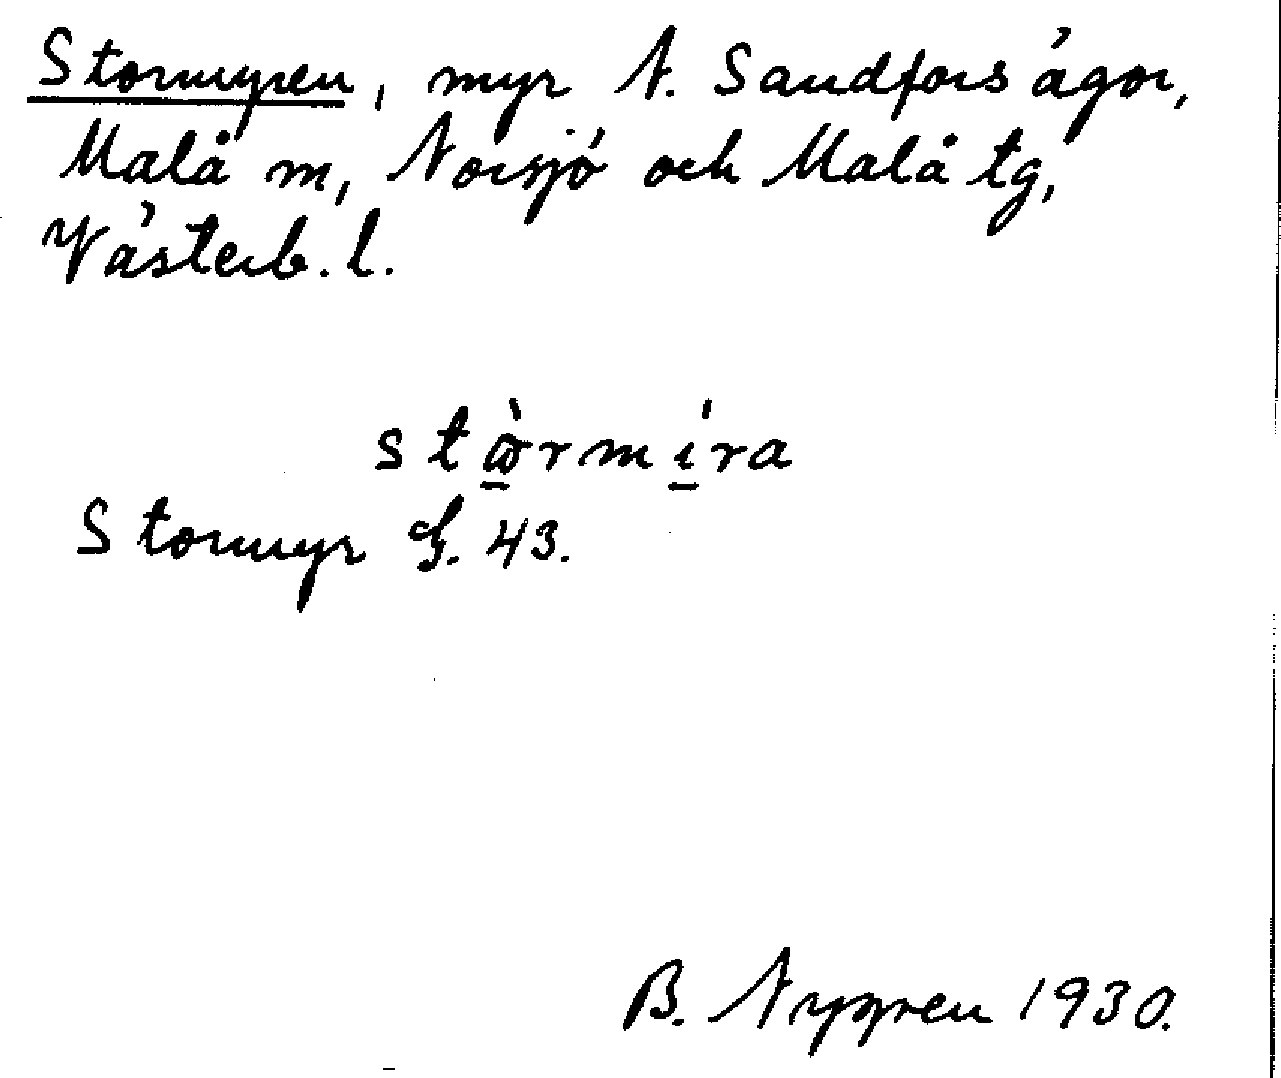 Stormyren, myr N. Sandfors ägor,
Malå m, Norsjö och Malå tg,
Västerb. l.
stὼ̲rmı̲́ra
Stormyr G. 43.
B. Nygren 1930.